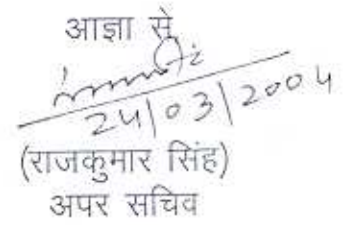 आज्ञा से,
24/03/2004
(राजकुमार सिंह)
अपर सचिव